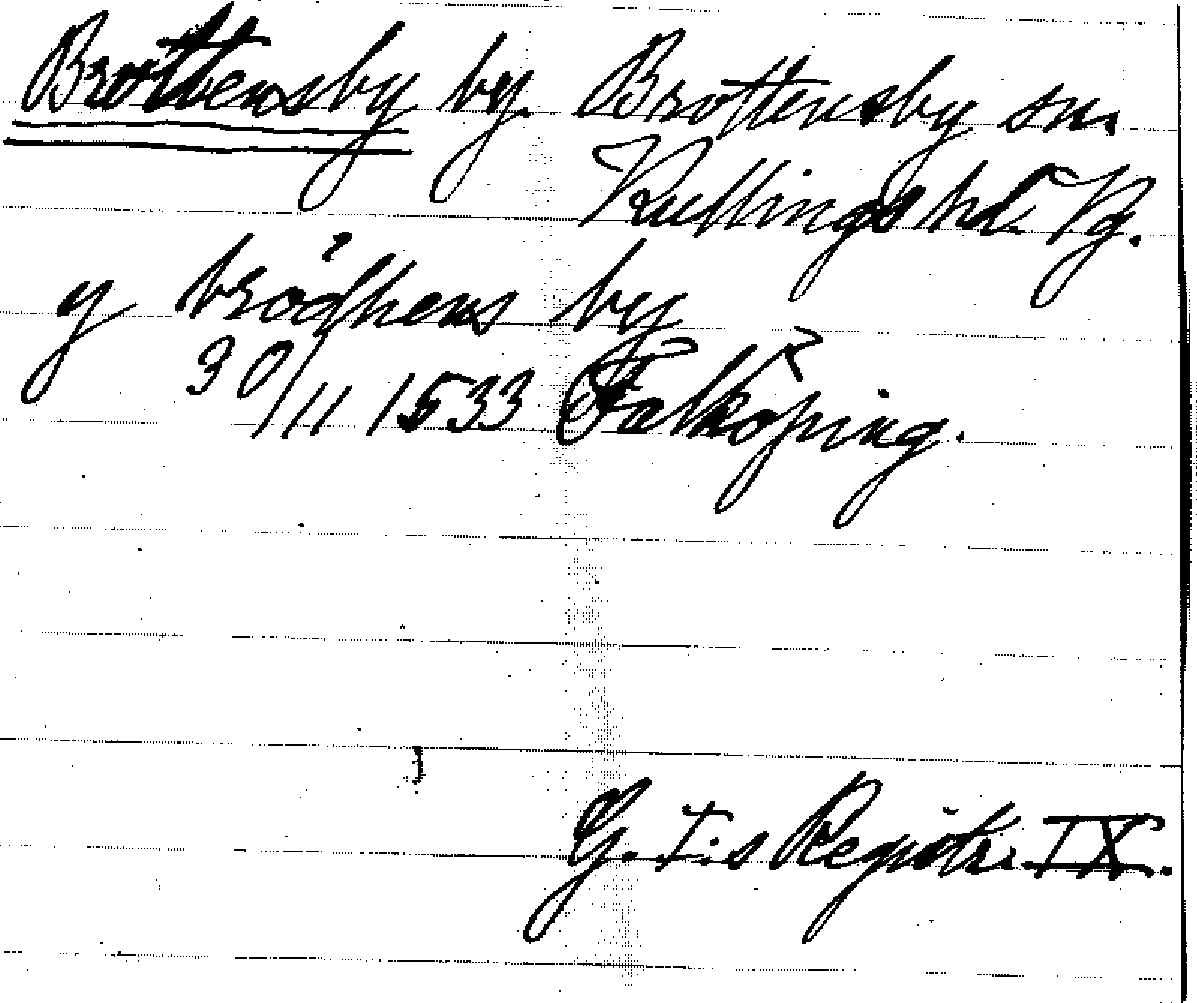 Brottensby by. Brottensby sn.
Kullings hd. Vg.
y brödhens by
30/11 1533 Falköping.
G. I:s Registr. IX.